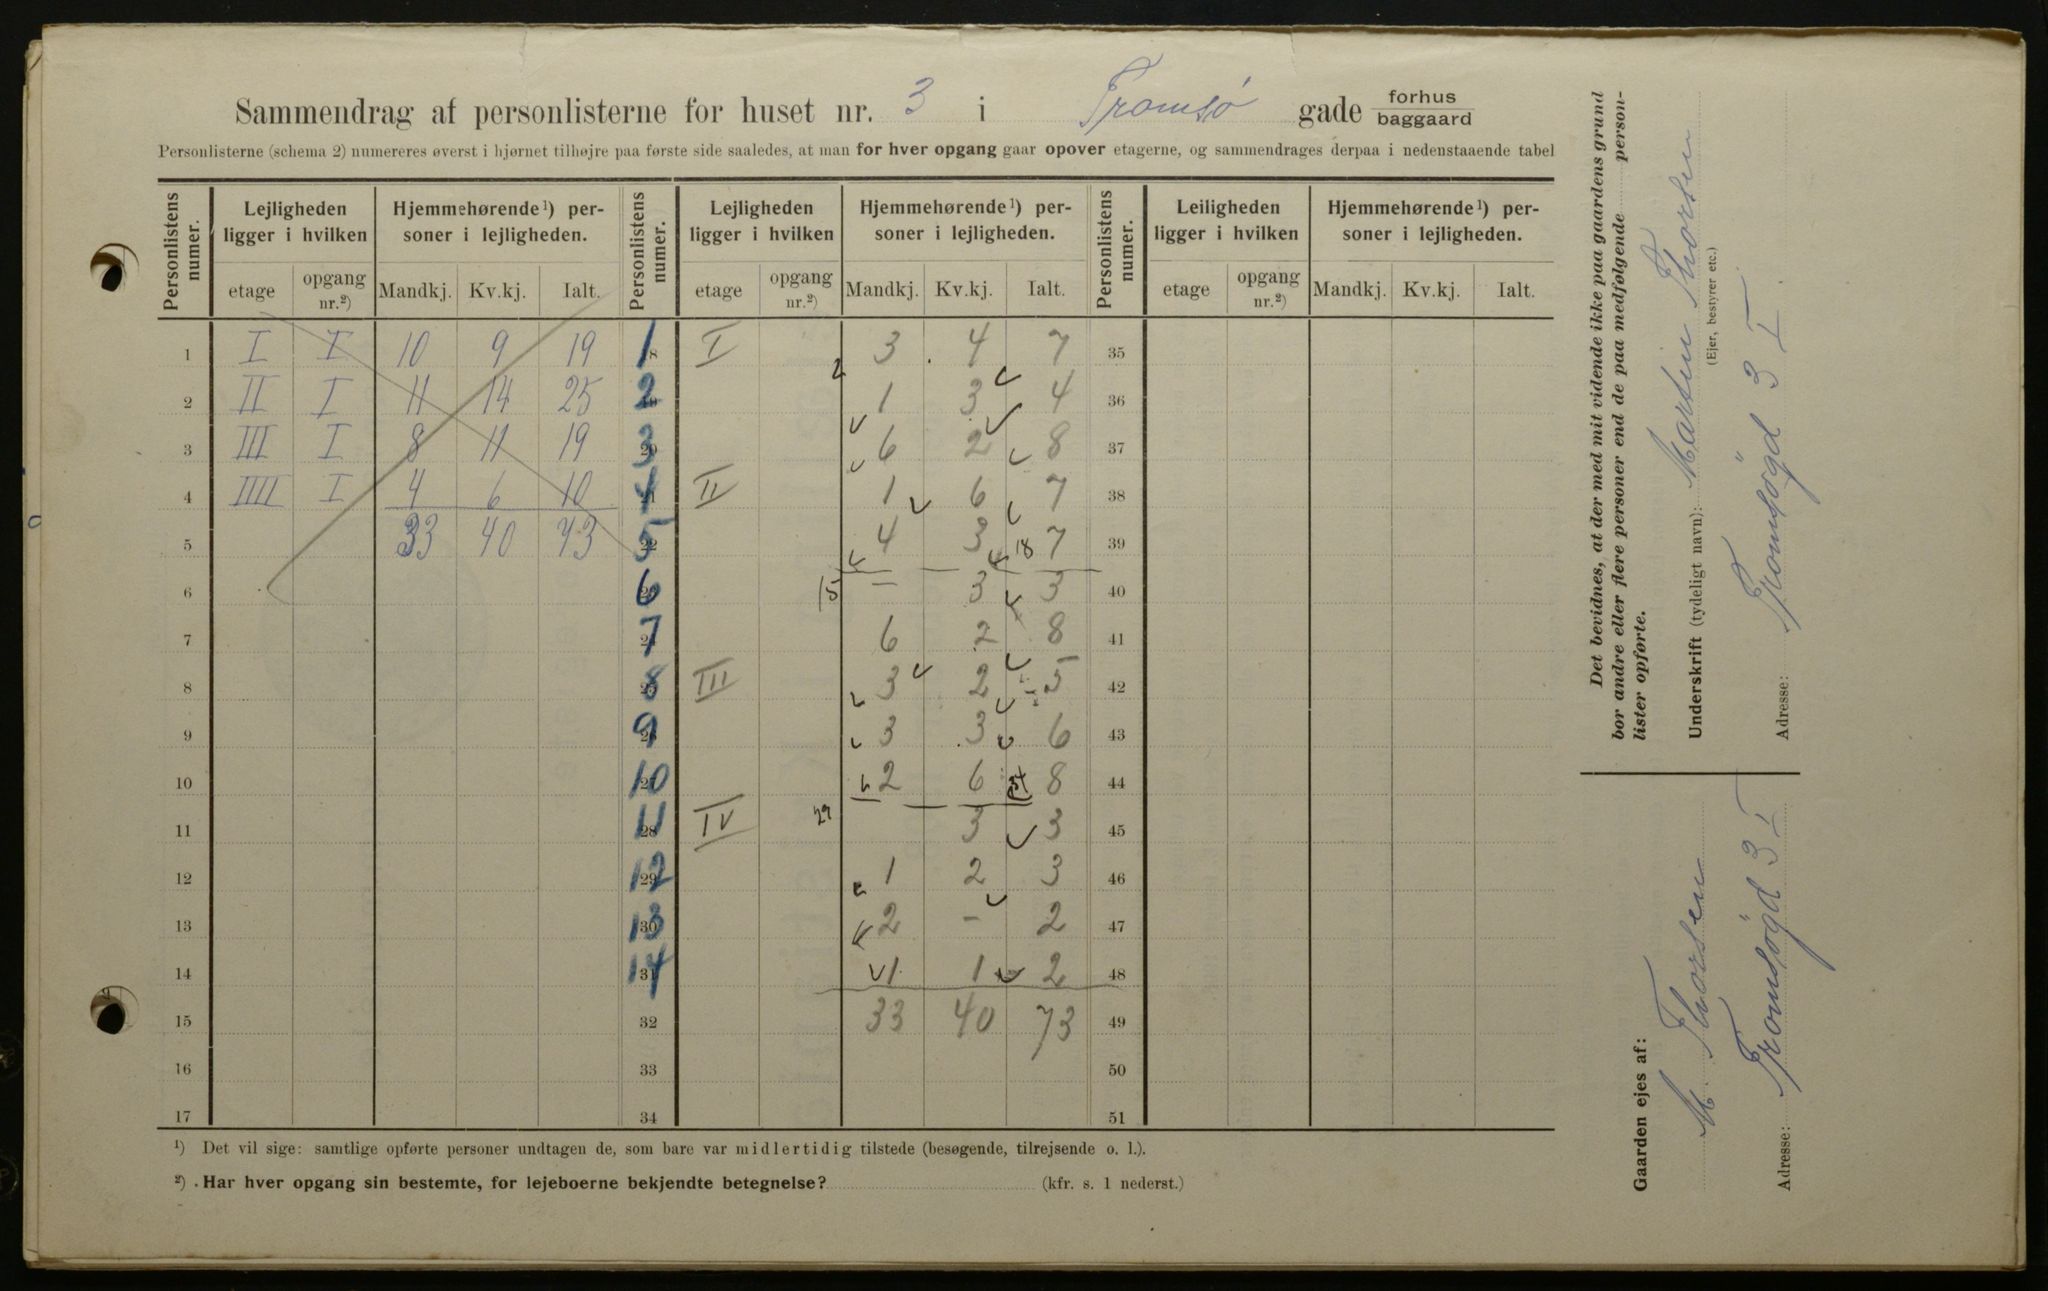 Sammendrag af personlisterne for huset nr. 3 i Tromsø gade forhus baggaard
Personlisterne (schema 2) numereres øverst i hjørnet tilhøjre paa første side saaledes, at man for hver opgang gaar opover etagerne, og sammendrages derpaa i nedenstaaende tabel
Personlistens numer. Lejligheden ligger i hvilken Hjemmehørende¹) personer i lejligheden. Personlistens numer. Lejligheden ligger i hvilken Hjemmehørende¹) personer i lejligheden. Personlistens numer. Leiligheden ligger i hvilken Hjemmehørende¹) personer i lejligheden.
etage opgang nr.²) Mandkj. Kv.kj. Ialt. etage opgang nr.²) Mandkj. Kv.kj. Ialt. etage opgang nr.²) Mandkj. Kv.kj. Ialt.
1 I I 10 9 19 1 I 3 4 7 35
2 II I 11 14 25 2 1 3 4 36
3 III I 8 11 19 3 6 2 8 37
4 IIII I 4 6 10 4 II 1 6 7 38
5 33 40 73 5 4 3 18 7 39
6 6 15 – 3 3 40
7 7 6 2 8 41
8 8 III 3 2 5 42
9 9 3 3 6 43
10 10 2 6 8 44
11 11 28 IV 29 3 3 45
12 12 29 1 2 3 46
13 13 30 2 – 2 47
14 14 31 1 1 2 48
15 32 33 40 73 49
16 33 50
17 34 51
¹) Det vil sige: samtlige opførte personer undtagen de, som bare var midlertidig tilstede (besøgende, tilrejsende o. l.).
²) Har hver opgang sin bestemte, for lejeboerne bekjendte betegnelse? (kfr. s. 1 nederst.)
Det bevidnes, at der med mit vidende ikke paa gaardens grund
bor andre eller flere personer end de paa medfølgende personlister opførte.
Underskrift (tydeligt navn): Martin Thorsen
(Ejer, bestyrer etc.)
Adresse: Tromsögd 3 I
Gaarden ejes af:
M. Thorsen
Adresse: Tromsögd 3 I